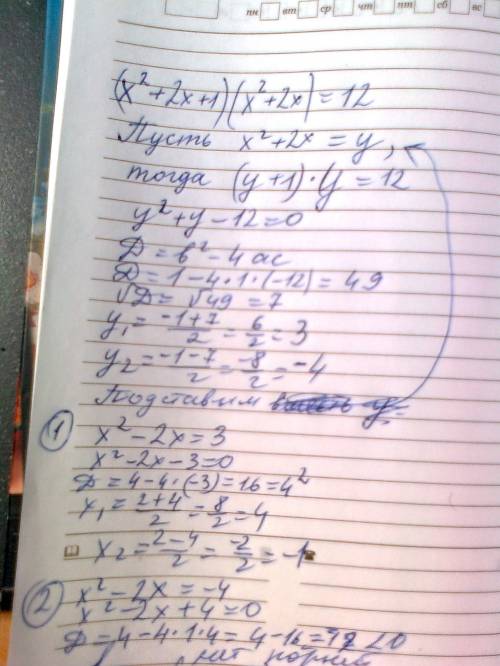 пн вт ср чт пт сб вс
(x²+2x+1)(x²+2x)=12
Пусть x²+2x=y,
тогда (y+1)·y=12
y²+y-12=0
D=b²-4ac
D=1-4·1·(-12)=49
√D=√49=7
y₁=(-1+7)/2=6/2=3
y₂=(-1-7)/2=-8/2=-4
Подставим
① x²-2x=3
x²-2x-3=0
D=4-4·(-3)=16=4²
x₁=(2+4)/2=8/2=4
x₂=(2-4)/2=-2/2=-1
② x²-2x=-4
x²-2x+4=0
D=4-4·1·4=4-16=-12<0
нет корней